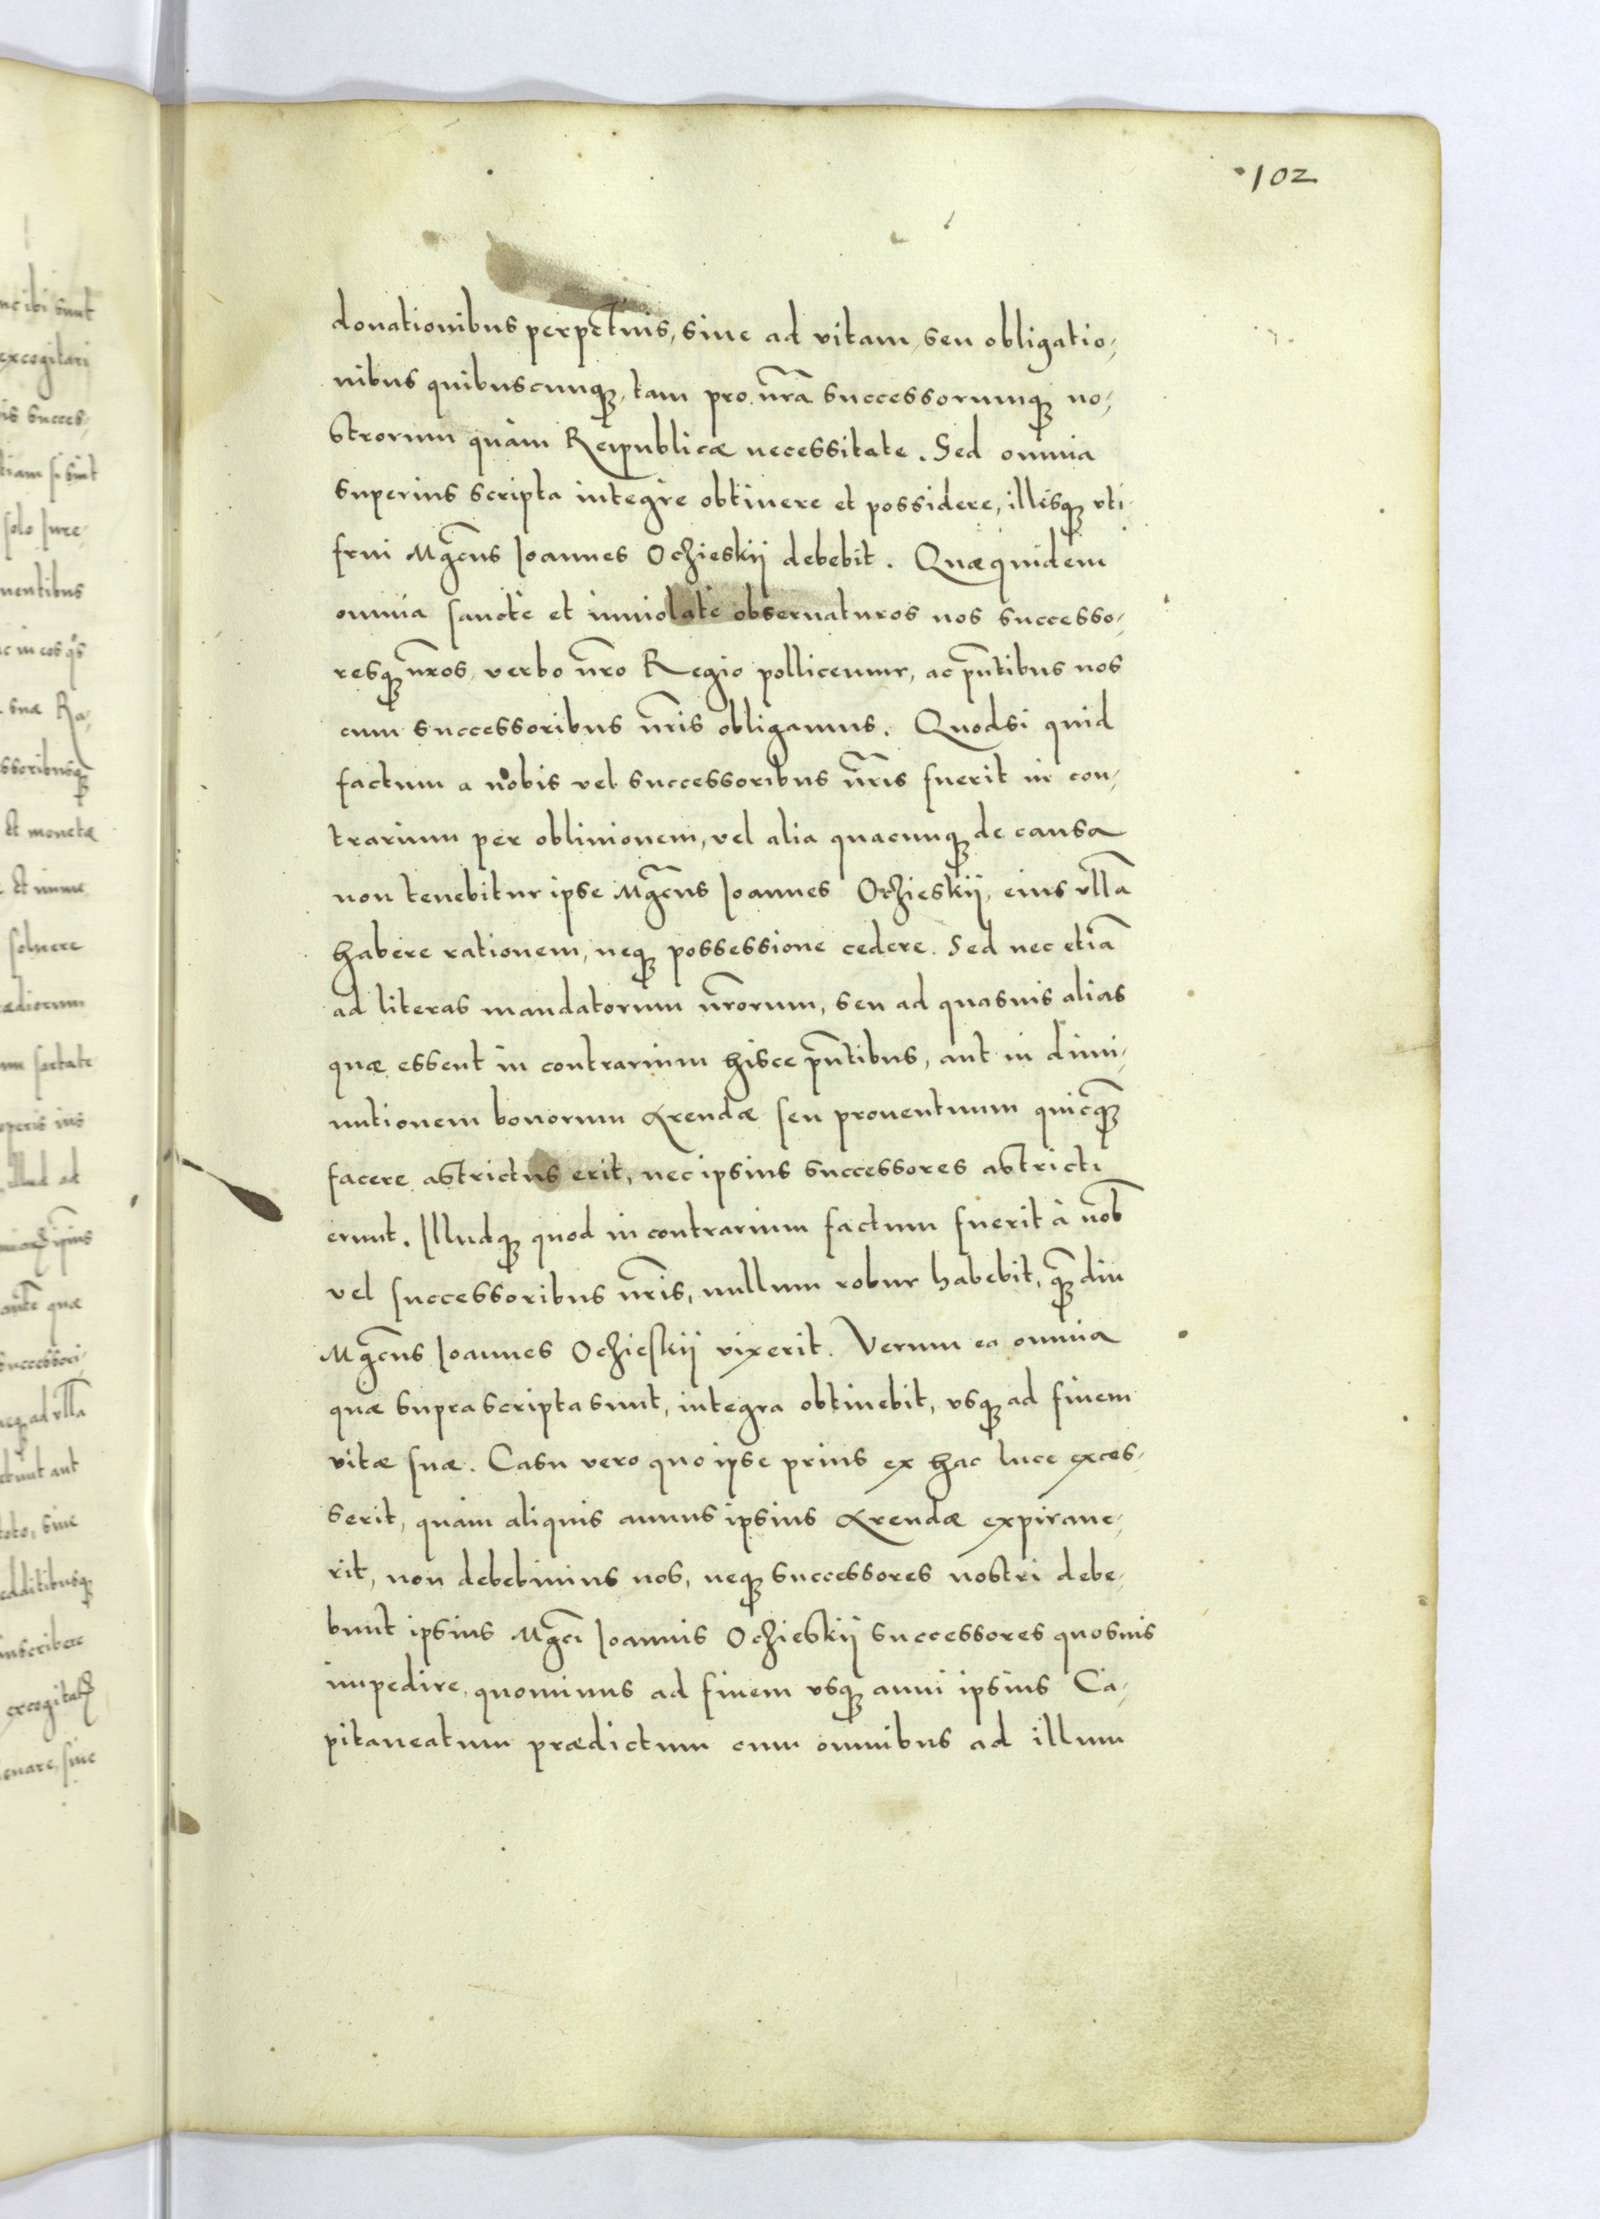 102
donationibus perpetuis, siue ad vitam, seu obligatio,
nibus quibuscunq, tam pro nr̃a successorumq no,
strorum quàm Reipublicæ necessitate. Sed omnia
superius scripta integrè obtinere et possidere, illisq vti
frui Mg̃cus Ioannes Oczieskij debebit. Quæquidem
omnia sanctè et inuiolatè obseruaturos nos successo,
resq nr̃os, verbo nr̃o Regio pollicemur, ac pñtibus nos
cum successoribus nr̃is obligamus. Quodsi quid
factum a nobis vel successoribus nr̃is fuerit in con,
trarium per obliuionem, vel alia quacunq de causa
non tenebitur ipse Mg̃cus Ioannes Oczieskij, eius vllã
habere rationem, neq possessione cedere. Sed nec etiã
ad literas mandatorum nr̃orum, seu ad quasuis alias
quæ essent in contrarium hisce pñtibus, aut in dimi,
nutionem bonorum Arendæ seu prouentuum quicq̃
facere astrictus erit, nec ipsius successores astricti
erunt. Illudq quod in contrarium factum fuerit à nob̃
vel successoribus nr̃is, nullum robur habebit, q̃diu
Mg̃cus Ioannes Oczieskij vixerit. Verum ea omnia
quæ supra scripta sunt, integra obtinebit, vsq ad finem
vitæ suæ. Casu vero quo ipse prius ex hac luce exces,
serit, quàm aliquis annus ipsius Arendæ expiraue,
rit, non debebimus nos, neq successores nostri debe,
bunt ipsius Mg̃ci Ioannis Oczieskij successores quosuis
impedire, quominus ad finem vsq anni ipsius Ca,
pitaneatum prædictum cum omnibus ad illum